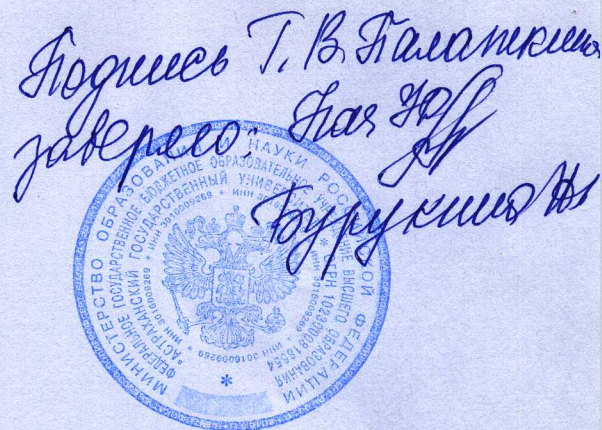 Подпись Г. В. Палаткина
заверяю: Нач УО
Бурукина
МИНИСТЕРСТВО ОБРАЗОВАНИЯ НАУКИ РОССИЙСКОЙ ФЕДЕРАЦИИ
ФЕДЕРАЛЬНОЕ ГОСУДАРСТВЕННОЕ БЮДЖЕТНОЕ ОБРАЗОВАТЕЛЬНОЕ УЧРЕЖДЕНИЕ ВЫСШЕГО ОБРАЗОВАНИЯ
"АСТРАХАНСКИЙ ГОСУДАРСТВЕННЫЙ УНИВЕРСИТЕТ"
* ИНН 3016009269 * ИНН 3016009269 * ИНН 3016009269 *